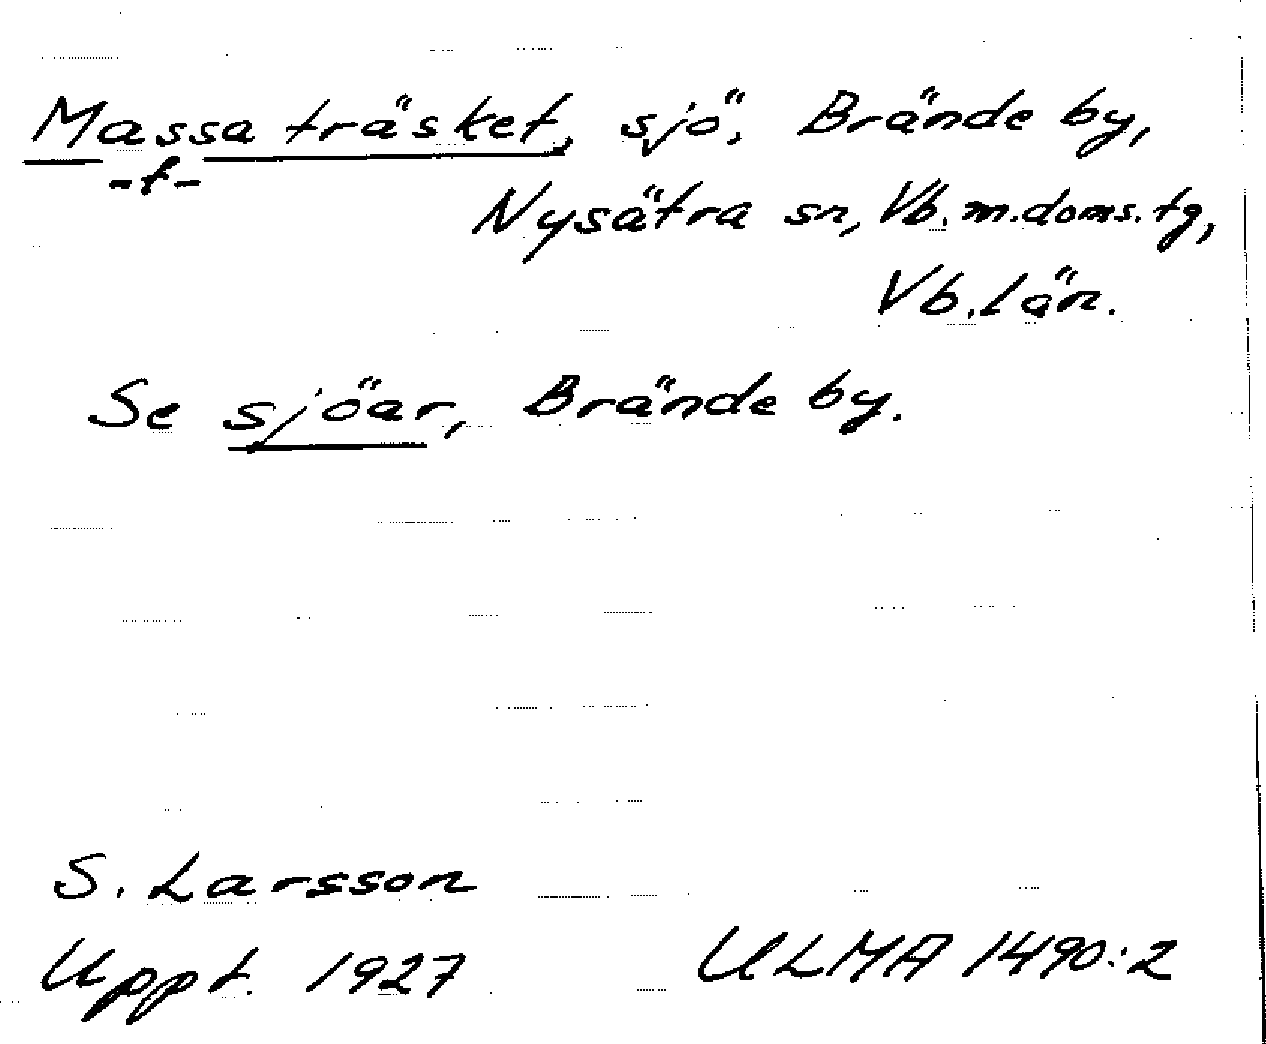 Massaträsket, sjö, Brände by,
-t-
Nysätra sn, Vb. m. doms. tg,
Vb. län.
Se sjöar, Brände by.
S. Larsson
Uppt. 1927 ULMA 1490:2